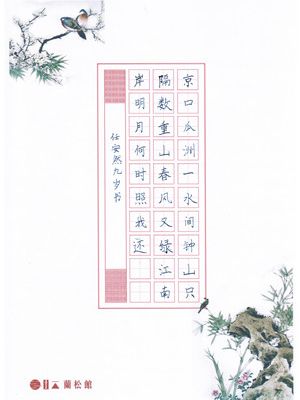 京口瓜洲一水间钟山只
隔数重山春风又绿江南
岸明月何时照我还
任安然九岁书
蘭松館